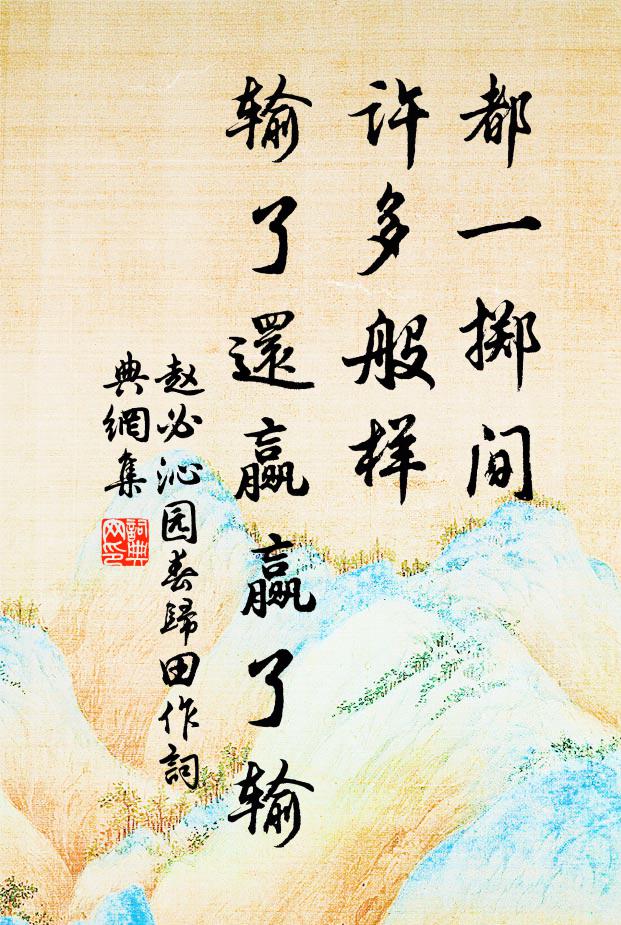 都一掷间
许多般样
输了還赢赢了输
赵必沁园春歸田作詞
典網集
詞典
网印